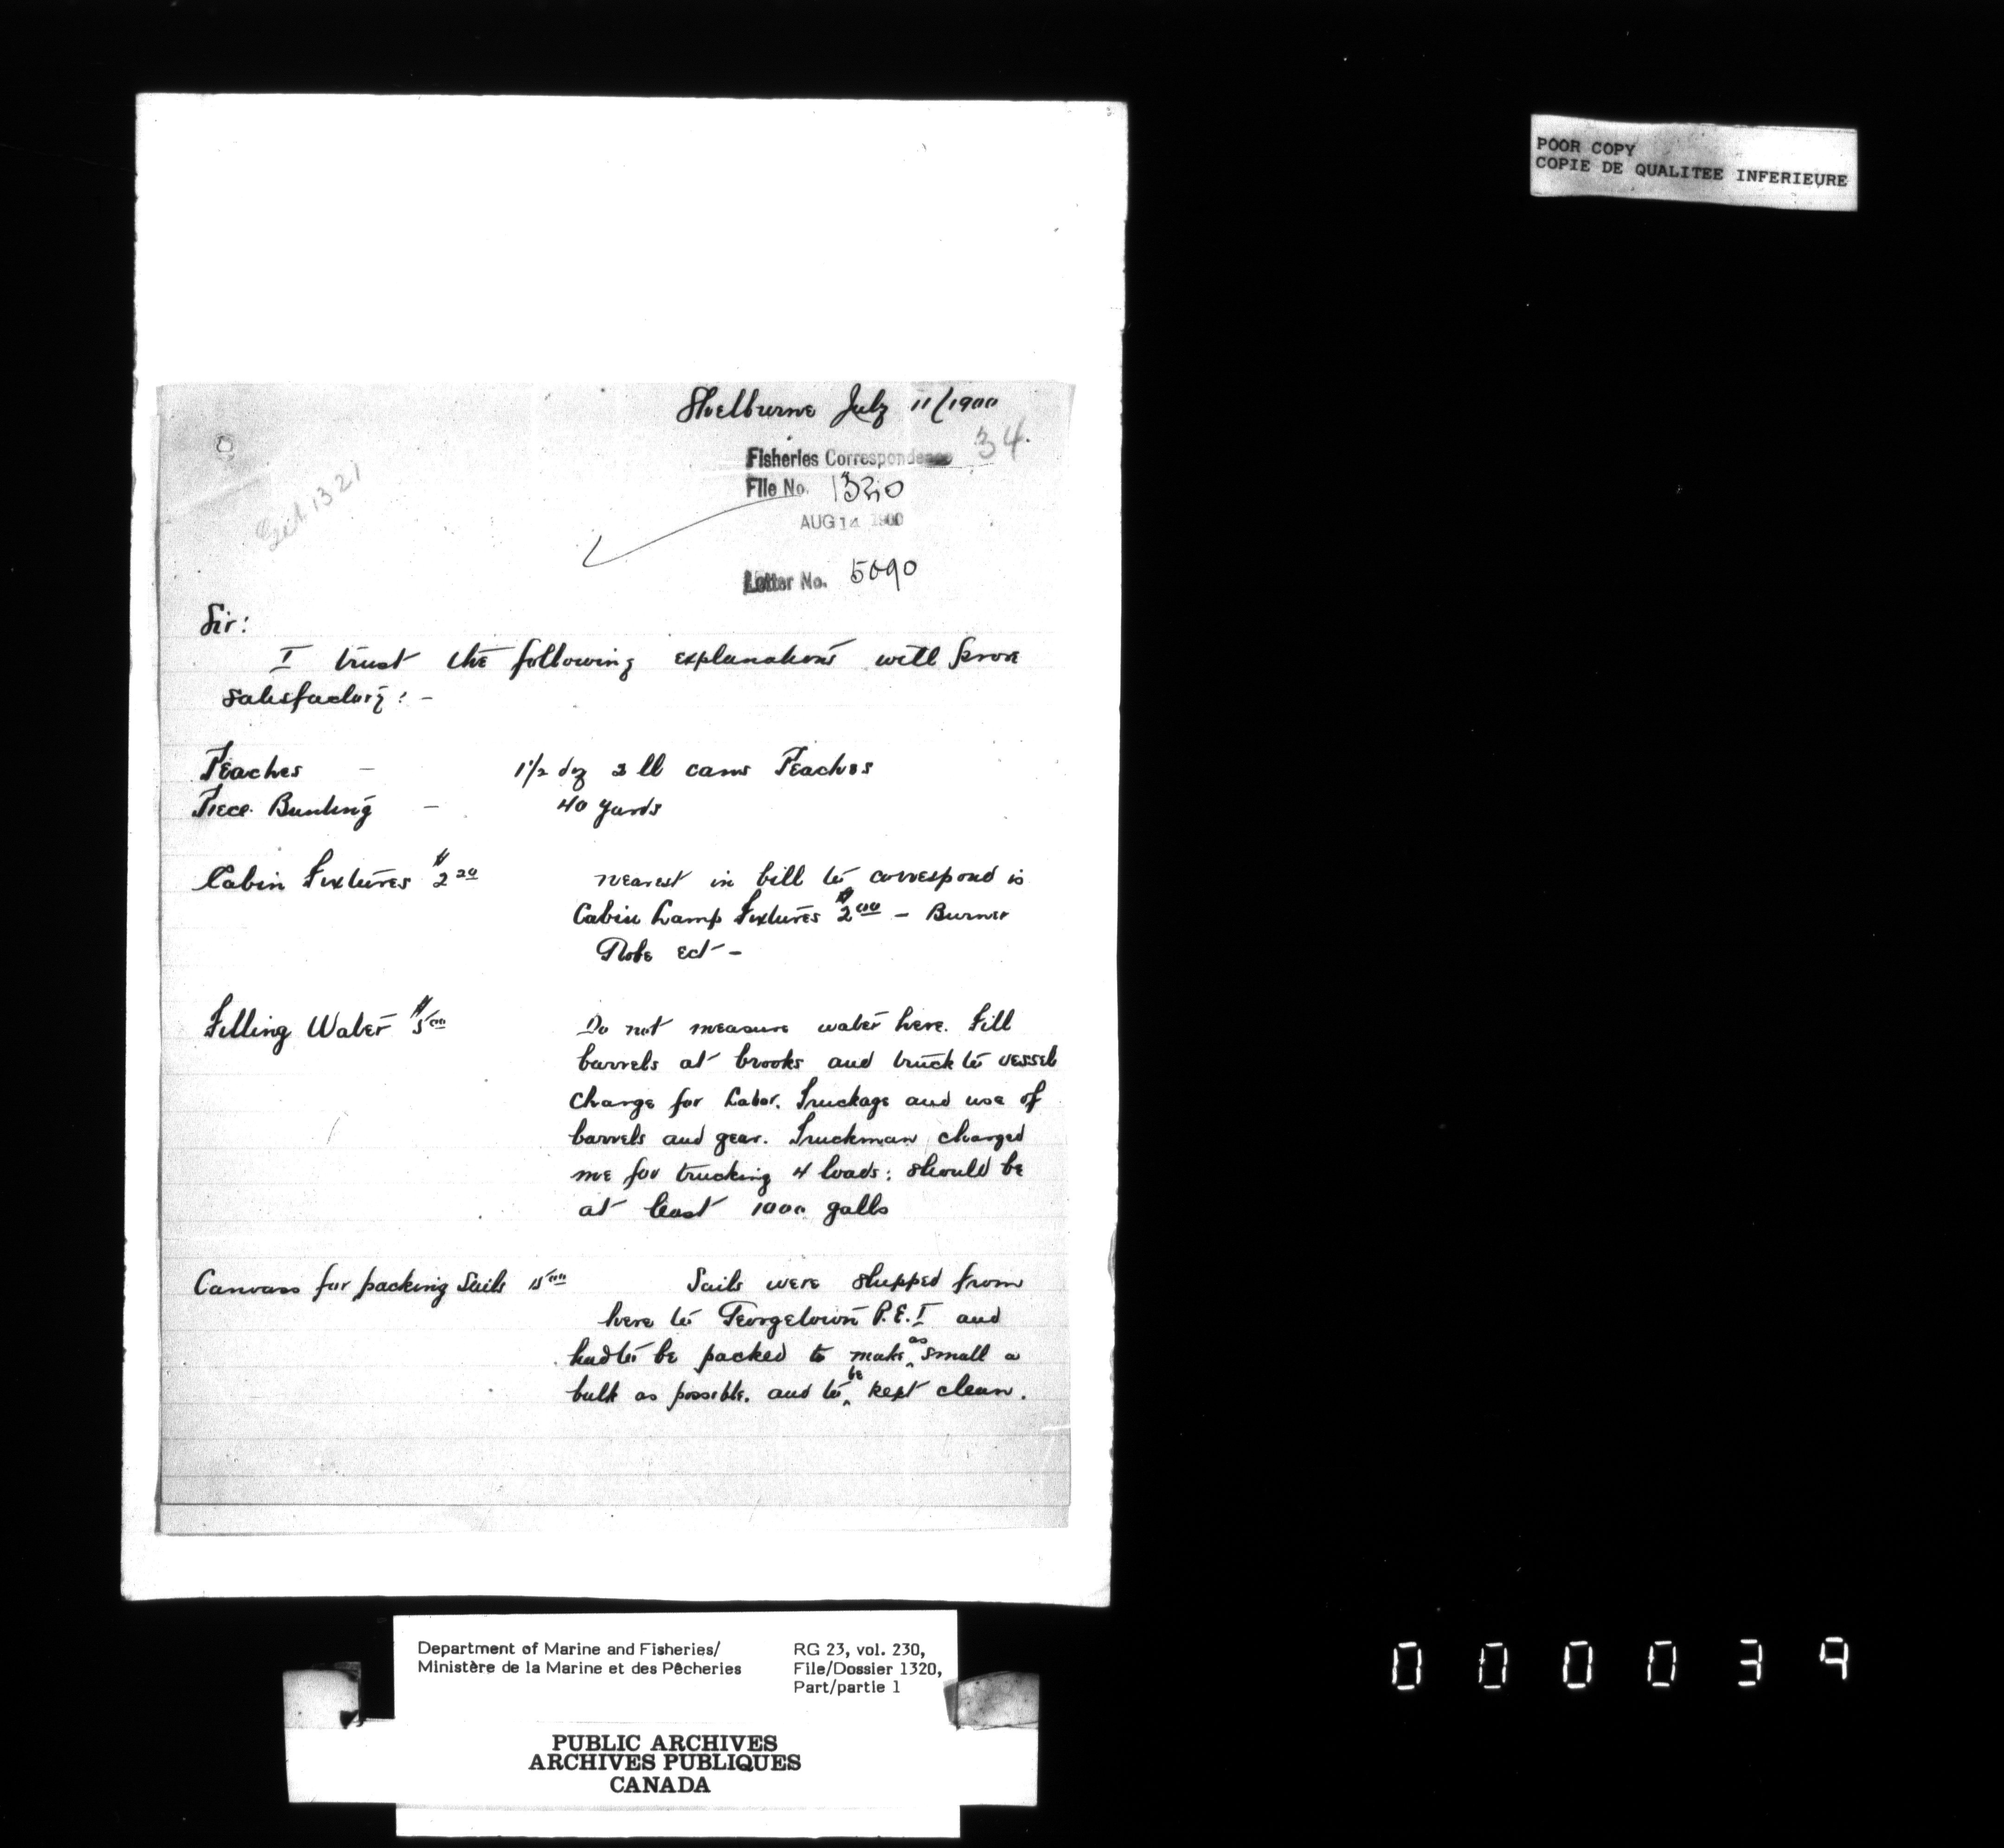 POOR COPY
COPIE DE QUALITEE INFERIEURE
Shelburne July 11/1900
34.
Fisheries Correspondence
File No. 1320
AUG 14 1900
1321
Letter No. 5090
Sir:
I trust the following explanations will prove
satisfactory: -
Peaches - 1 1/2 doz 3 lb cans Peaches
Piece Bunting - 40 yards
Cabin Fixtures $2 20 nearest in bill to correspond is
Cabin Lamp Fixtures $2 00 - Burner
Globe ect -
Filling Water $5 00 Do not measure water here. Fill
barrels at brooks and truck to vessel
Charge for Labor. Truckage and use of
barrels and gear. Truckman charged
me for trucking 4 loads: should be
at least 1000 galls
Canvass for packing Sails Sails were shipped from
here to Georgetown P.E.I and
had to be packed to make as small a
bulk as possible. and to be kept clean.
Department of Marine and Fisheries/
Ministère de la Marine et des Pêcheries
RG 23, vol. 230,
File/Dossier 1320,
Part/partie 1
PUBLIC ARCHIVES
ARCHIVES PUBLIQUES
CANADA
000039